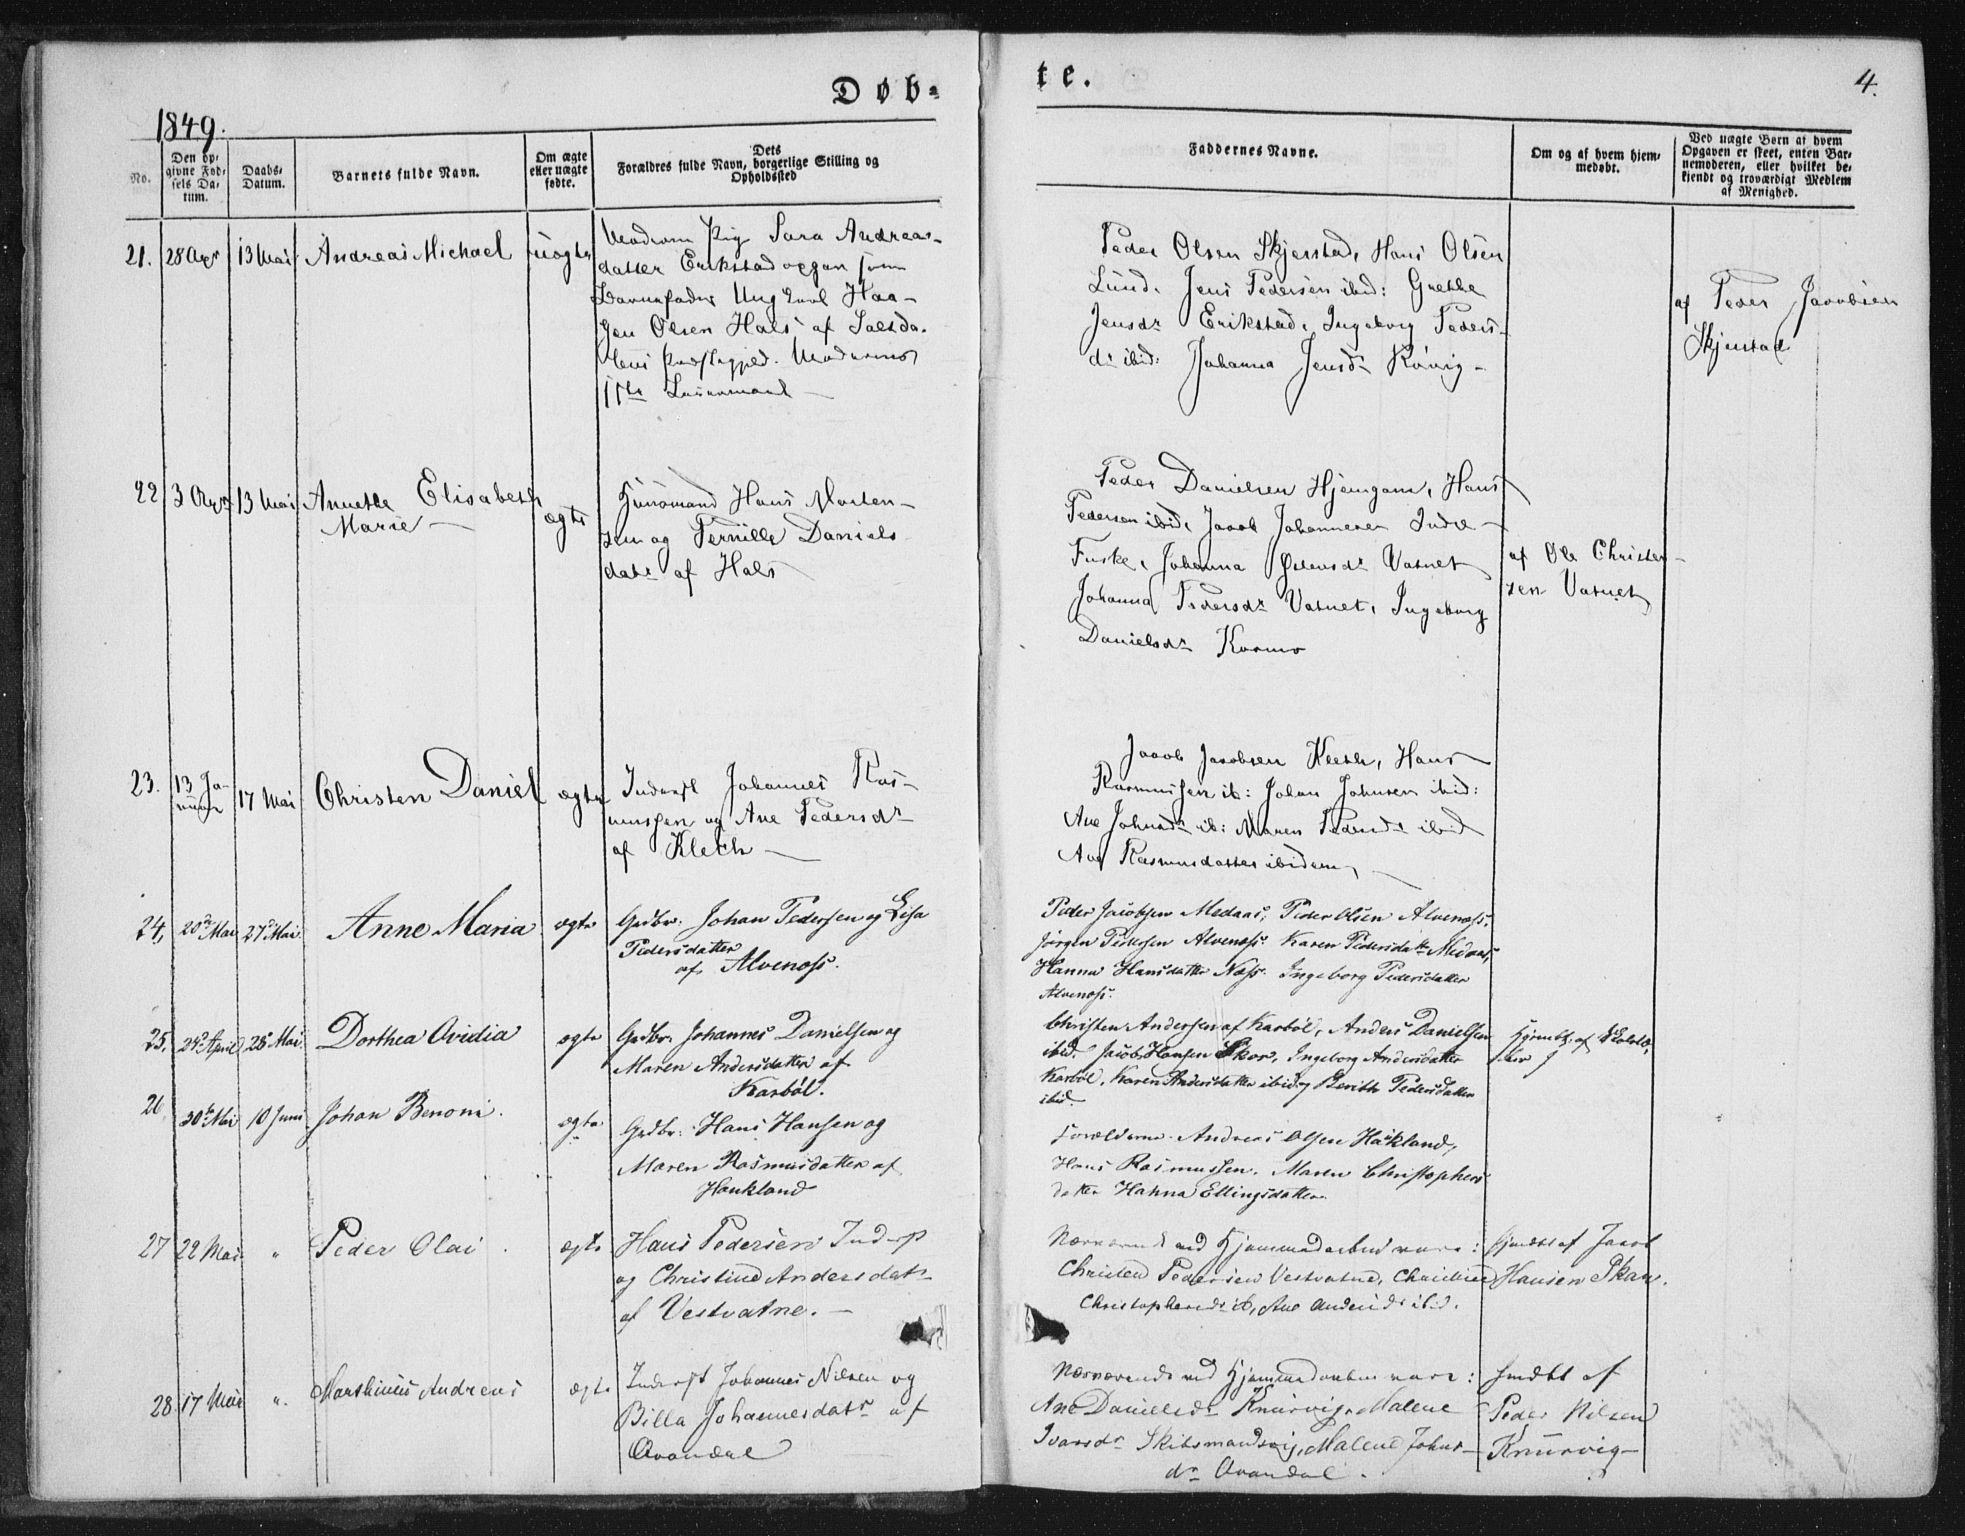 Døb-
te.
4.
1849.
No.
Den op-
givne Fød-
sels Da-
tum.
Daabs-
Datum.
Barnets fulde Navn.
Om ægte
eller uægte
fødte.
Dets
Forældres fulde Navn, borgerlige Stilling og
Opholdssted
Faddernes Navne.
Om og af hvem hjem-
medøbt.
Ved uægte Børn af hvem
Opgaven er skeet, enten Bar-
nemoderen, eller hvilket be-
kjendt og troværdigt Medlem
af Menighed.
21. 28 Apr 13 Mai Andreas Michael uægte
Moderen Pig Sara Andreas-
datter Erikstad opgav som
Barnefader Ung Karl Haa-
gen Olsen Hals af Saltda-
lens Præstegjeld. Moderens
1ste Leiermaal
Peder Olsen Skjerstad, Hans Olsen
Lund. Jens Pedersen ibid: Grethe
Jensdr Erikstad, Ingeborg Peders-
dr ibid: Johanna Jensdr Røvig
af Peder Jacobsen
Skjerstad
22 3 Apr 13 Mai Annethe Elisabeth
Marie
ægte
Huusmand Hans Morten-
sen og Pernille Daniels
datr af Hals
Peder Danielsen Hjemgam, Hans
Pedersen ibid, Jacob Johannesen Indre
Fuske, Johanna Vatnet
Johanna Pedersdr Vatnet, Ingeborg
Danielsdr Kosmo
af Ole Christen-
sen Vatnet
23. 13 Ja-
nuar
17 Mai Christen Daniel ægte
Inderst Johannes Ras-
mussen og Ane Pedersdr
af Kleth
Jacob Jacobsen Kleth, Hans
Rasmussen ib: Johan Johnsen ibid:
Ane Johnsdr ib: Maren Pedersdr ibid
Ane Rasmusdatter ibidem,
24, 20de Mai 27de Mai Anne Maria ægte
Grdbr. Johan Pedersen og Lisa
Pedersdatter
af Alvenæss.
Peder Jacobsen Medaas, Peder Olsen Alvenæss.
Jørgen Pedersen Alvenæss. Karen Pedersdatter Medaas,
Hanna Hansdatter Næss. Ingeborg Pedersdatter
Alvenæss.
25, 24de April 28de Mai Dorthea Ovidia ægte
Grdbr. Johannes Danielsen og
Maren Andersdatter af
Karbøl.
Christen Andersen af Karbøl, Anders Danielsen
ibid. Jacob Hansen Skar, Ingeborg Andersdatter
Karbøl, Karen Andersdatter ibid og Berith Pedersdatter
ibid.
26 30te Mai 10 Juni Johan Benoni. ægte
Grdbr. Hans Hansen og
Maren Rasmusdatter af
Haukland
Forældrene. Andreas Olsen Haukland,
Hans Rasmussen. Maren Christophers
datter Hanna Ellingsdatter.
27 22 Mai " Peder Olai ægte
Hans Pedersen Inderst
og Christine Andersdatr
af Vestvatne.
Nærværende ved Hjemmedaaben vare:
Christen Pedersen Vestvatne, Christine
Christophersdr ib, Ane Andersdr ibid.
Hjmdbt af Jacob
Hansen Skar.
28 17 Mai " Marthinus Andreas ægte
Inderst Johannes Nilsen og
Billa Johannesdatr af
Qvandal
Nærværende ved Hjemmedaaben vare:
Ane Danielsdr Knurvig, Malene
Ivarsdr Skibsmandsvig, Malene Johns-
dr Qvandal.
hmdbt af
Peder Nilsen
Knurvig